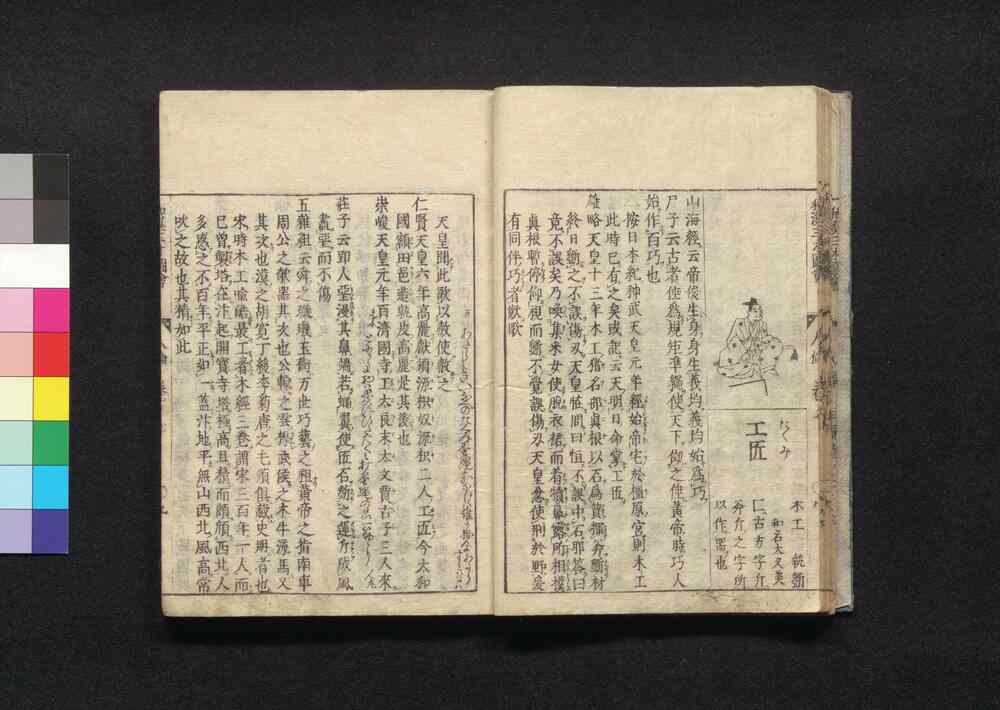 たくみ
工匠
木工 執斲
和名大久美
匚古方字斤
斧斤之字所
以作噐也
山海經云帝俊生身身生義均義均始爲巧
尸子云古者倕為規矩準繩使天下倣之倕黃帝時巧人
始作百巧也
△按日本紀神武天皇元年經始帝宅於橿原宮則木工
此時已有之矣或記云天明日命掌工匠
雄略天皇十三年木工猪名部眞根以石爲質揮斧斲材
終日斲之不誤傷刃天皇恠問曰恒不誤中石耶答曰
竟不誤矣乃喚集采女使脱衣裙而着犢鼻露所相撲
眞根暫停仰視而斲不覺誤傷刃天皇忿使刑於野爰
有同伴巧者歎歌
天皇聞此歌以赦使赦之
仁賢天皇六年高麗獻須流枳奴流枳二人工匠今大和
國額田邑造熟皮高麗是其後也
崇峻天皇元年百濟國寺工太良末太文賈古子三人來
莊子云郢人堊漫其鼻端若蠅翼使匠石斲之運斤成風
盡堊而不傷
五雜組云舜之璇璣玉衡万世巧藝之祖黃帝之指南車
周公之欹器其次也公輸之雲梯武侯之木牛流馬又
其次也漢之胡寛丁緩李菊唐之毛順俱載史册者也
宋時木工喩皓最工著木經三卷謂宋三百年一人而
已曾造塔在汴起開寶寺塔極高且精而頗傾西北人
多惑之不百年平正如一蓋汴地平無山西北風高常
吹之故也其精如此